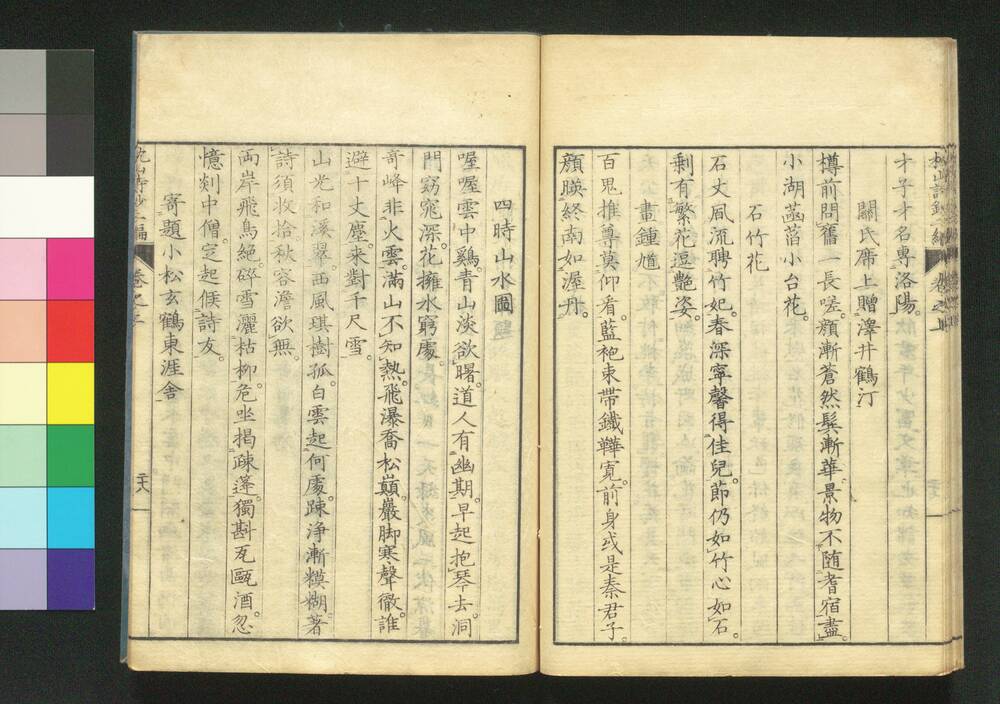 才子才名專洛陽。
關氏席上贈澤井鶴汀
樽前問舊一長嗟。顏漸蒼然鬓漸華。景物不随耆宿盡。
小湖菡萏小台花。
石竹花
石丈風流聘竹妃。春深寧馨得佳兒。莭仍如竹心如石。
剩有繁花逗艶姿。
畫鍾馗
百鬼推尊莫仰看。藍袍束帶鐵鞾寬。前身或是秦君子。
顏䏹終南如渥丹。
四時山水圖
喔喔雲中鷄。青山淡欲曙。道人有幽期。早起抱琴去。洞
門窈窕深。花擁水窮處。
奇峰非火雲。滿山不知熱。飛瀑喬松巓。巖脚寒聲徹。誰
避十丈塵。來對千尺雪。
山光和溪翠。西風琪樹孤。白雲起何處。踈浄漸糢糊。著
詩須收拾。秋容澹欲無。
両岸飛鳥絕。碎雪灑枯柳。危坐揭疎篷。獨斟瓦甌酒。忽
憶剡中僧。定起俟詩友。
寄題小松玄鶴東涯舎
卷之上
二十八